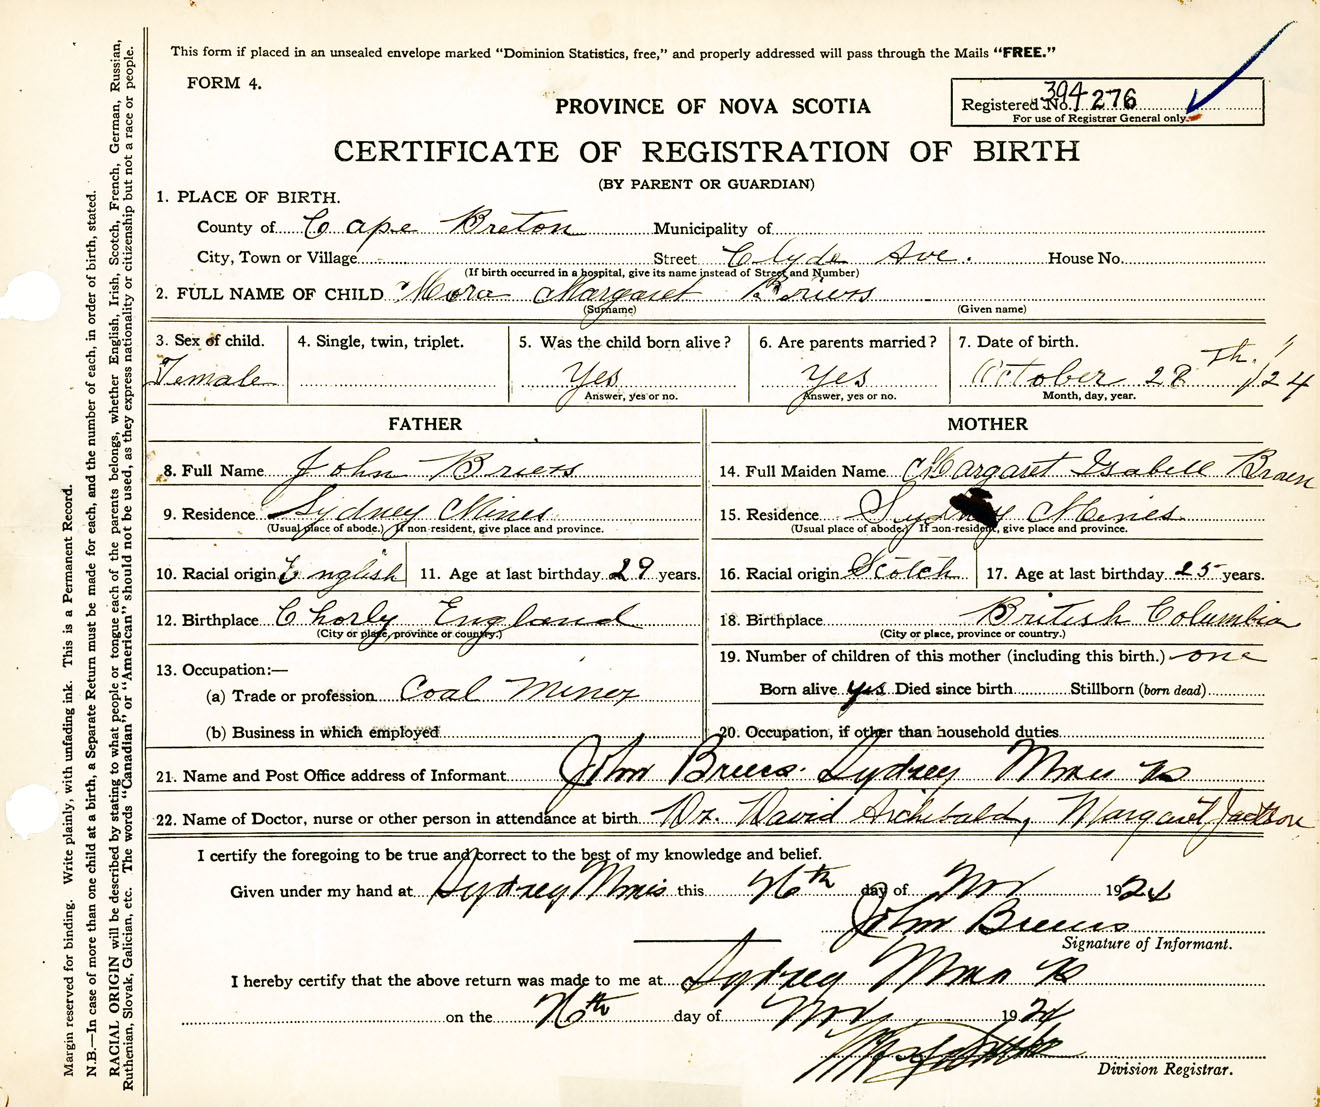 This form if placed in an unsealed envelope marked "Dominion Statistics, free," and properly addressed will pass through the Mails "FREE."
FORM 4.
PROVINCE OF NOVA SCOTIA
Registered No. 394276
For use of Registrar General only.
CERTIFICATE OF REGISTRATION OF BIRTH
(BY PARENT OR GUARDIAN)
1. PLACE OF BIRTH.
County of Cape Breton Municipality of
City, Town or Village Street Clyde Ave. House No.
(If birth occurred in a hospital, give its name instead of Street and Number)
2. FULL NAME OF CHILD Margaret
(Surname) (Given name)
3. Sex of child. 4. Single, twin, triplet. 5. Was the child born alive? 6. Are parents married? 7. Date of birth.
Female Yes Yes October 28 Th. 24
Answer, yes or no. Answer, yes or no. Month, day, year.
FATHER MOTHER
8. Full Name John 14. Full Maiden Name Margaret Isabell
9. Residence Sydney Mines 15. Residence Sydney Mines
(Usual place of abode.) If non-resident, give place and province. (Usual place of abode.) If non-resident, give place and province.
10. Racial origin English 11. Age at last birthday 29 years. 16. Racial origin Scotch 17. Age at last birthday 25 years.
12. Birthplace Chorly England 18. Birthplace British Columbia
(City or place, province or country.) (City or place, province or country.)
19. Number of children of this mother (including this birth.) one
13. Occupation:—
(a) Trade or profession Coal Miner Born alive yes Died since birth Stillborn (born dead)
(b) Business in which employed 20. Occupation, if other than household duties
21. Name and Post Office address of Informant John Sydney Mines NS
22. Name of Doctor, nurse or other person in attendance at birth Dr. David Archibald, Margaret Jackson
I certify the foregoing to be true and correct to the best of my knowledge and belief.
Given under my hand at Sydney Mines this th day of Nov 1924
John
Signature of Informant.
I hereby certify that the above return was made to me at Sydney Mines NS
on the th day of Nov 1924
Division Registrar.
Margin reserved for binding. Write plainly, with unfading ink. This is a Permanent Record.
N.B.—In case of more than one child at a birth, a Separate Return must be made for each, and the number of each, in order of birth, stated.
RACIAL ORIGIN will be described by stating to what people or tongue each of the parents belongs, whether English, Irish, Scotch, French, German, Russian,
Ruthenian, Slovak, Galician, etc. The words "Canadian" or "American" should not be used, as they express nationality or citizenship but not a race or people.